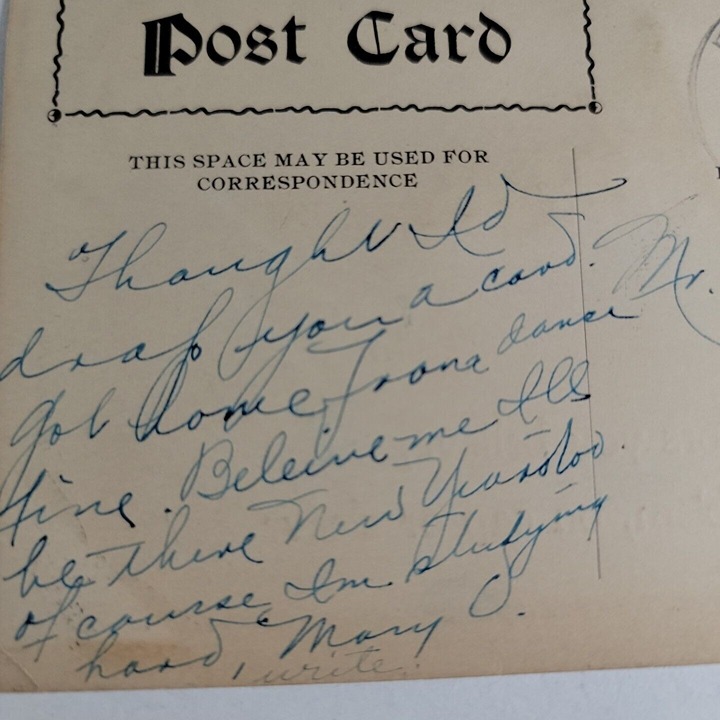 Post Card
THIS SPACE MAY BE USED FOR
CORRESPONDENCE
Thought Id
drop you a card.
Got home from dance
fine. Beleive me Ill
be there New Years too.
Of course Im studying
hard, Mary.
write.
Mr.